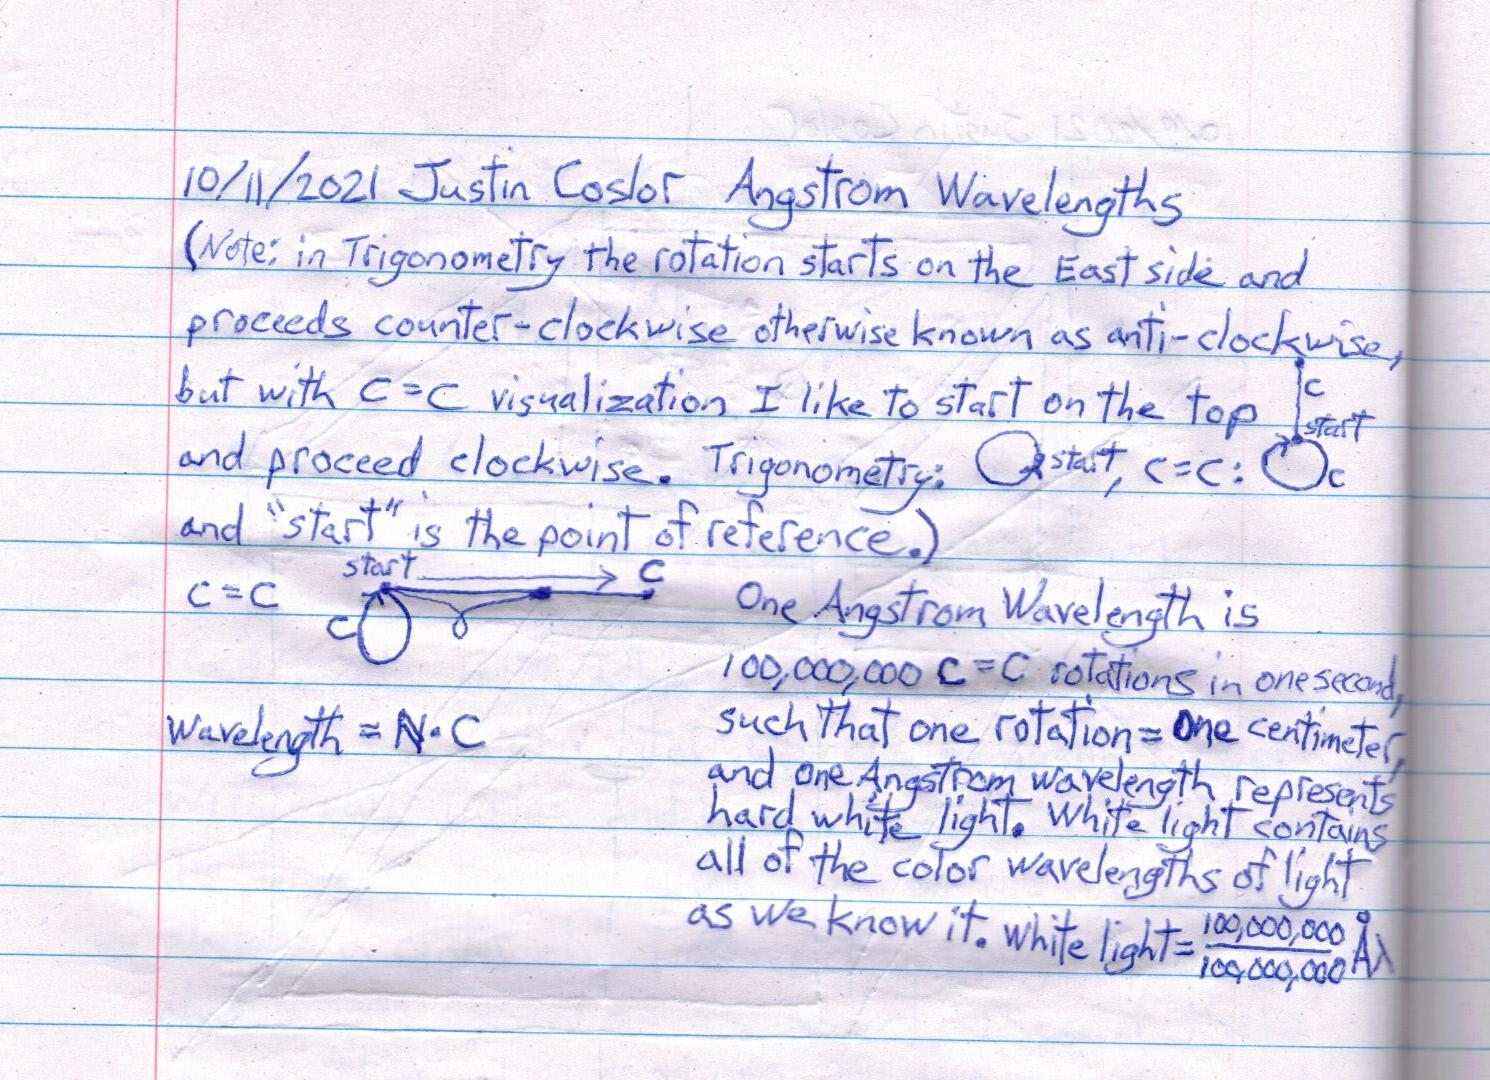 10/11/2021 Justin Coslor Angstrom Wavelengths
(Note: in Trigonometry the rotation starts on the East side and
proceeds counter-clockwise otherwise known as anti-clockwise,
but with C=C visualization I like to start on the top
C
start
and proceed clockwise. Trigonometry: start, C=C: C
and "start" is the point of reference.)
start C
C=C C
One Angstrom Wavelength is
100,000,000 C=C rotations in one second,
Wavelength = N·C
such that one rotation = One centimeter,
and one Angstrom wavelength represents
hard white light. White light contains
all of the color wavelengths of light
as we know it. White light = 100,000,000/100,000,000 Åλ